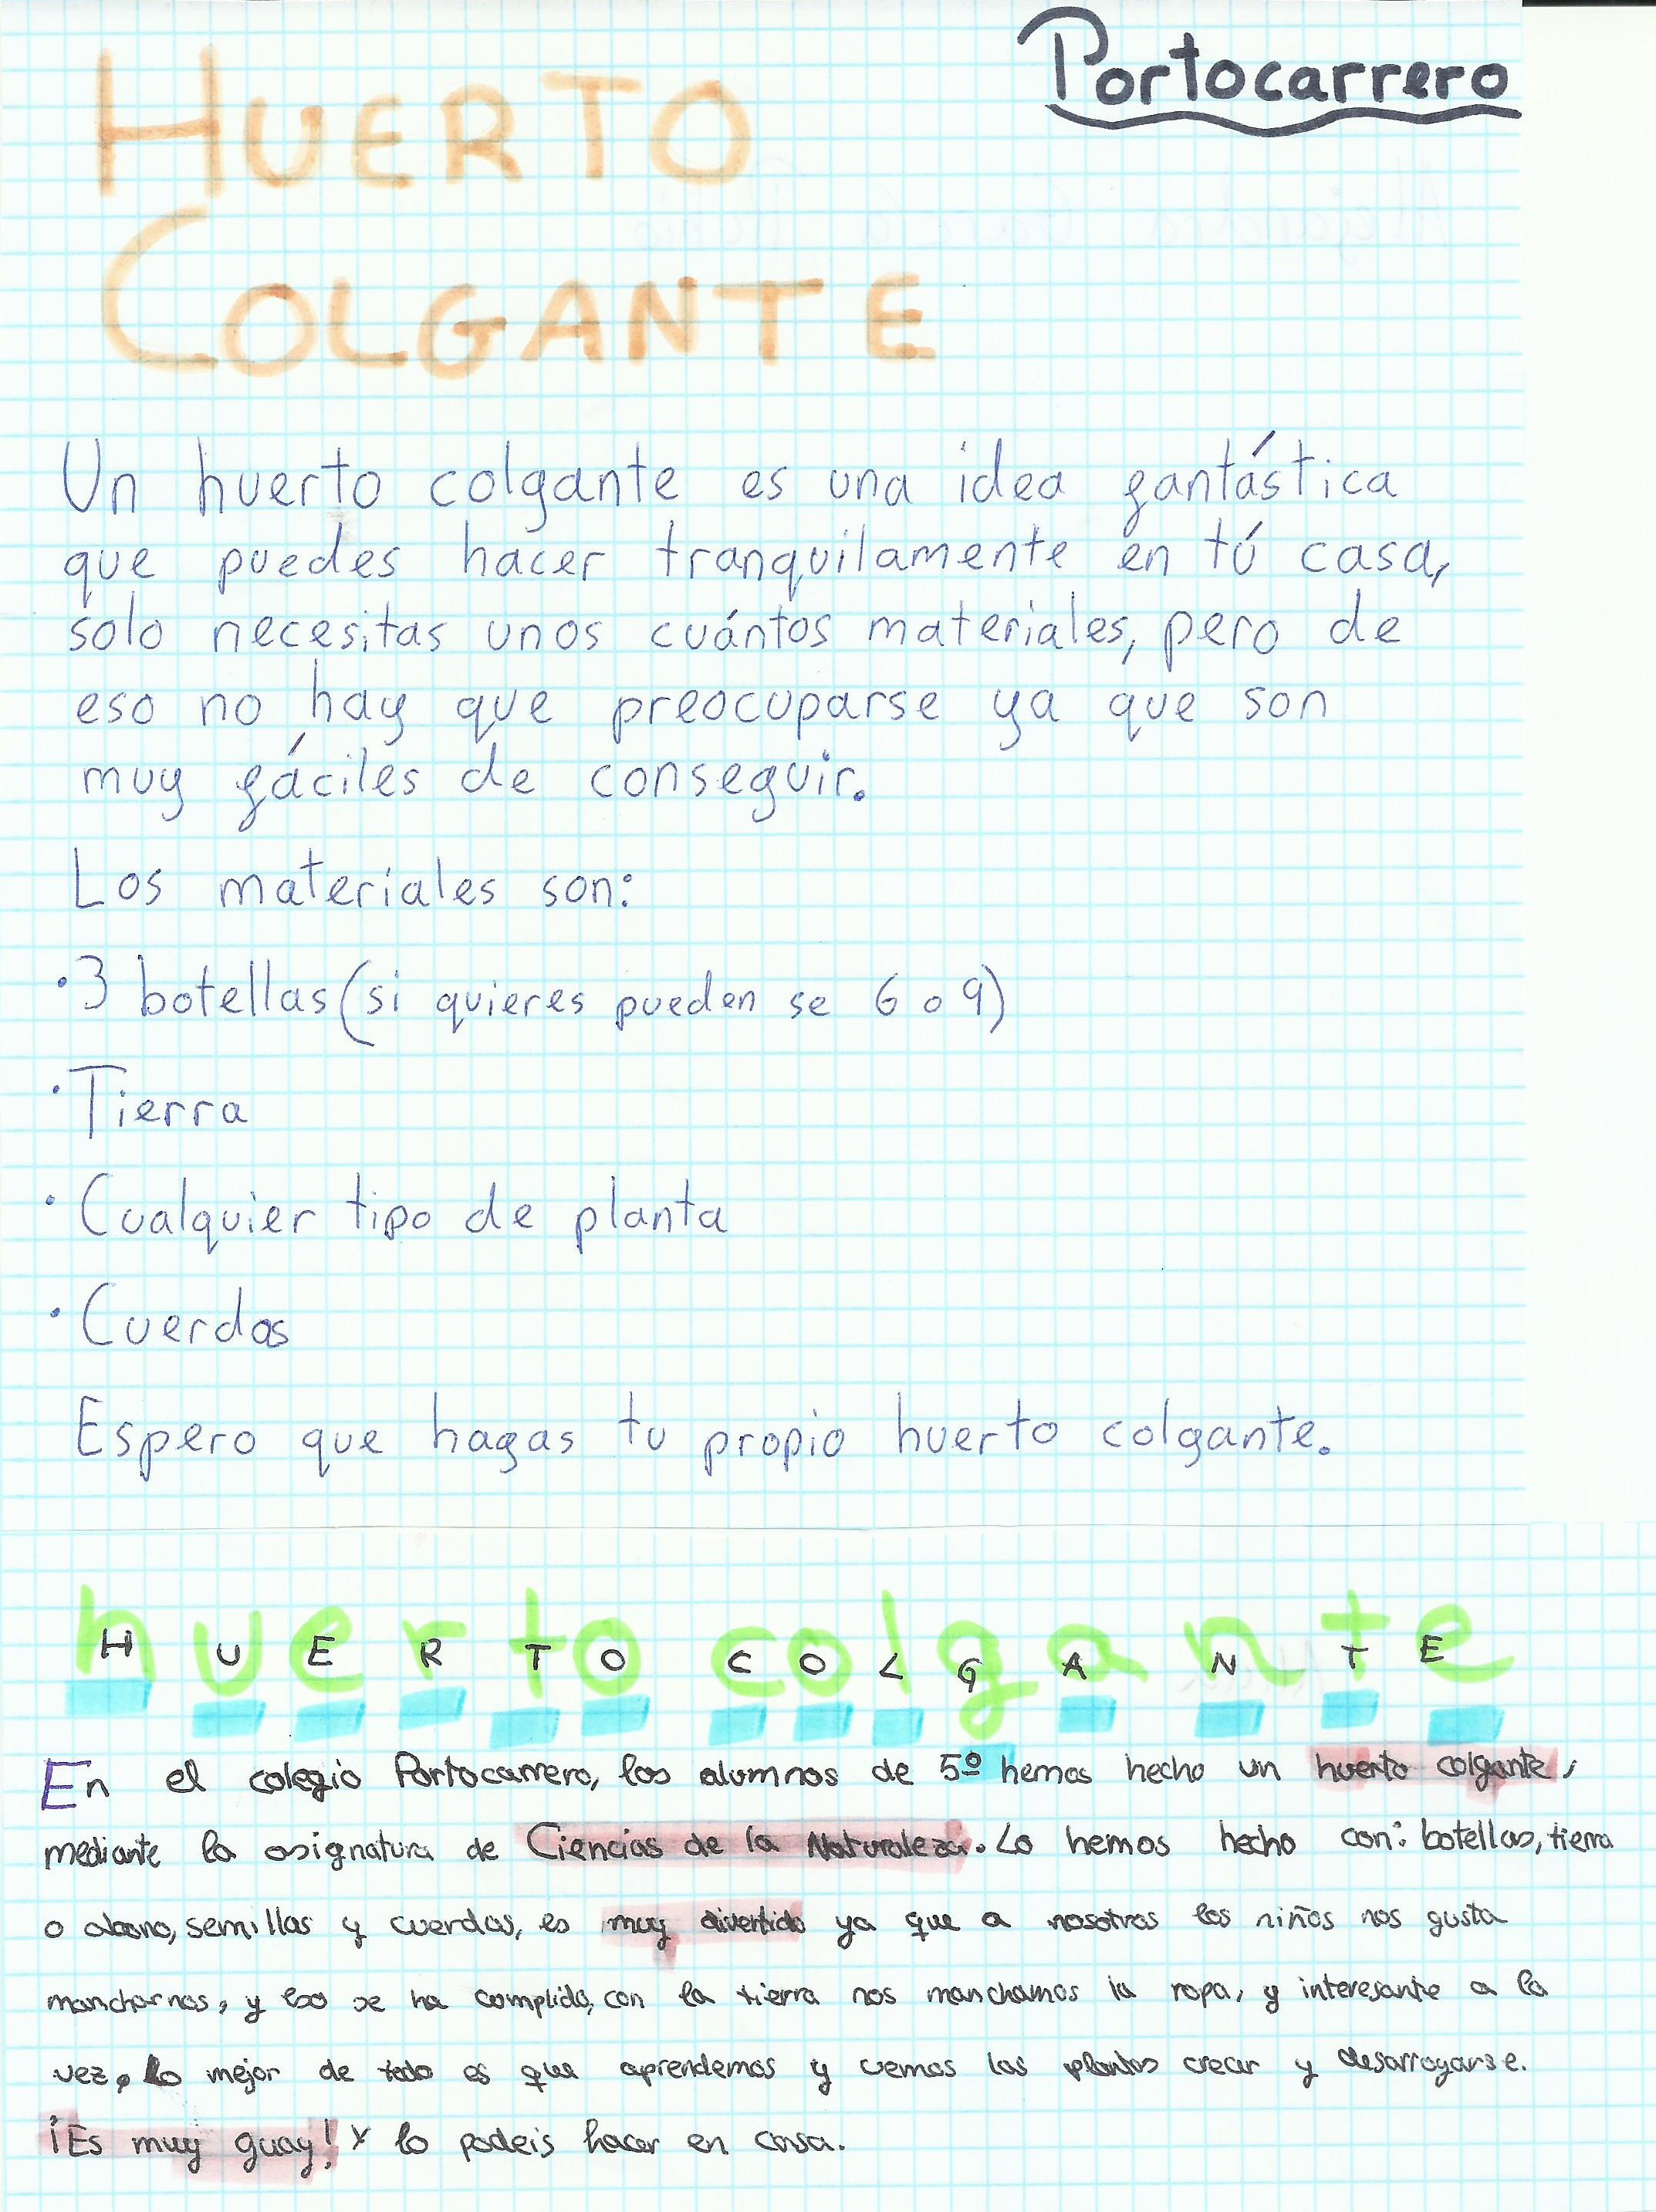 Portocarrero
HUERTO
COLGANTE
Un huerto colgante es una idea fantástica
que puedes hacer tranquilamente en tú casa,
solo necesitas unos cuántos materiales, pero de
eso no hay que preocuparse ya que son
muy fáciles de conseguir.
Los materiales son:
·3 botellas (si quieres pueden se 6 o 9)
·Tierra
·Cualquier tipo de planta
·Cuerdas
Espero que hagas tu propio huerto colgante.
huerto colgante
HUERTO COLGANTE
En el colegio Portocarrero, los alumnos de 5º hemos hecho un huerto colgante,
mediante la asignatura de Ciencias de la Naturaleza. Lo hemos hecho con: botellas, tierra
o abono, semillas y cuerdas, es muy divertido ya que a nosotros los niños nos gusta
mancharnos, y eso se ha cumplido, con la tierra nos manchamos la ropa, y interesante a la
vez, lo mejor de todo es que aprendemos y vemos las plantas crecer y desarroyarse.
¡Es muy guay! Y lo podeis hacer en casa.